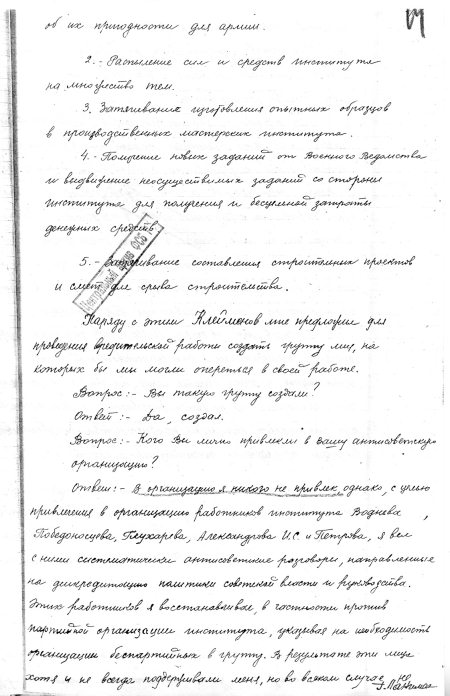 об их пригодности для армии.
2.- Распыление сил и средств института
на множество тем.
3. Затягивание изготовления опытных образцов
в производственных мастерских института.
4.- Получение новых заданий от Военного Ведомства
и выдвижение неосуществимых заданий со стороны
института для получения и бесцельной затраты
денежных средств.
5.- Затягивание составления строительных проектов
и смет для срыва строительства.
Центральный архив ФСБ
Наряду с этим Клейменов мне предложил для
проведения вредительской работы создать группу лиц, на
которых бы мы могли опереться в своей работе.
Вопрос:- Вы такую группу создали?
Ответ:- Да, создал.
Вопрос:- Кого Вы лично привлекли в вашу антисоветскую
организацию?
Ответ:- В организацию я никого не привлек, однако, с целью
привлечения в организацию работников института
Победоносцева, Глухарева, Александрова И.С. и Петрова, я вел
с ними систематически антисоветские разговоры, направленные
на дискредитацию политики советской власти и руководства.
Этих работников я восстанавливал, в частности против
партийной организации института, указывая на необходимость
организации беспартийных в группу. В результате эти лица
хотя и не всегда поддерживали меня, но во всяком случае не